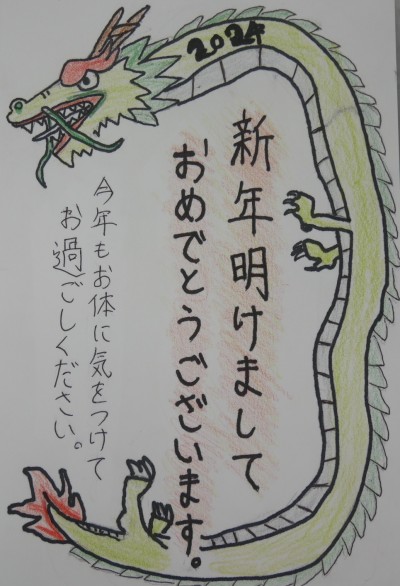 2024
新年明けまして
おめでとうございます。
今年もお体に気をつけて
お過ごしください。